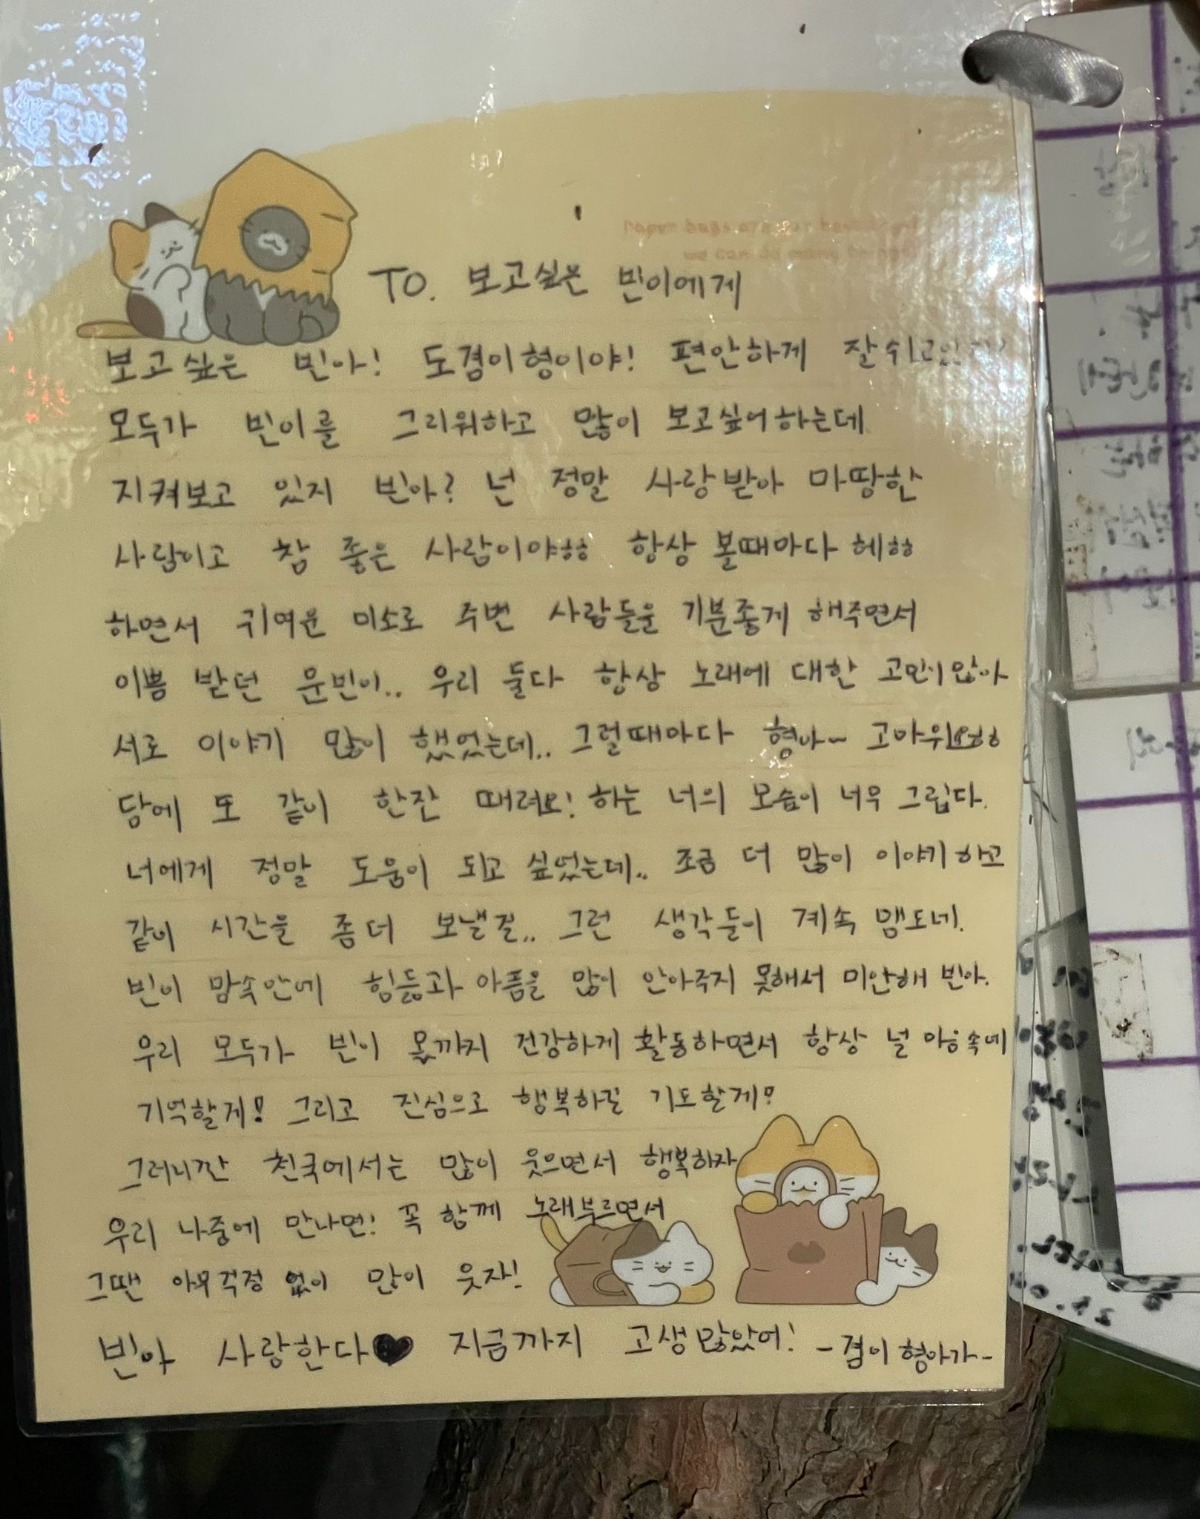 TO. 보고싶은 빈이에게
보고싶은 빈아! 도겸이형이야! 편안하게 잘쉬고
모두가 빈이를 그리워하고 많이 보고싶어하는데
지켜보고 있지 빈아? 넌 정말 사랑받아 마땅한
사람이고 참 좋은 사람이야ㅎㅎ 항상 볼때마다 헤ㅎㅎ
하면서 귀여운 미소로 주변 사람들을 기분좋게 해주면서
이쁨 받던 문빈이.. 우리 둘다 항상 노래에 대한 고민이 많아
서로 이야기 많이 했었는데.. 그럴때마다 형아~ 고마워요ㅎㅎ
담에 또 같이 한잔 때려요! 하는 너의 모습이 너무 그립다.
너에게 정말 도움이 되고 싶었는데.. 조금 더 많이 이야기하고
같이 시간을 좀더 보낼걸.. 그런 생각들이 계속 맴도네.
빈이 맘속안에 힘듦과 아픔을 많이 안아주지 못해서 미안해 빈아.
우리 모두가 빈이 몫까지 건강하게 활동하면서 항상 널 마음속에
기억할게! 그리고 진심으로 행복하길 기도할게!
그러니깐 천국에서는 많이 웃으면서 행복하자
우리 나중에 만나면! 꼭 함께 노래부르면서
그땐 아무걱정 없이 많이 웃자!
빈아 사랑한다♥ 지금까지 고생많았어! -겸이 형아가-